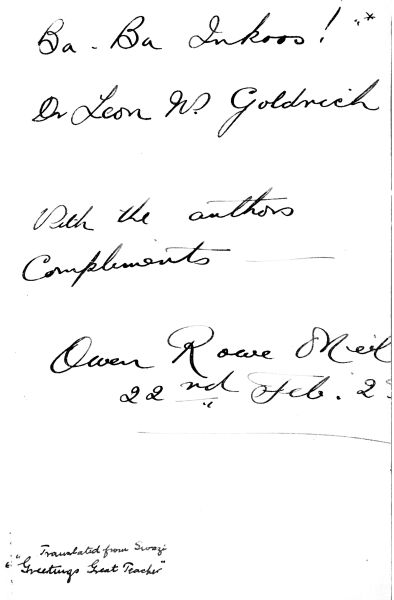 Ba-Ba Inkoos! "*
Dr Leon W. Goldrich
With the authors
Compliments
Owen Rowe O'Neil
22nd Feb. 2
Translated from Swazi
* "Greetings Great Teacher"